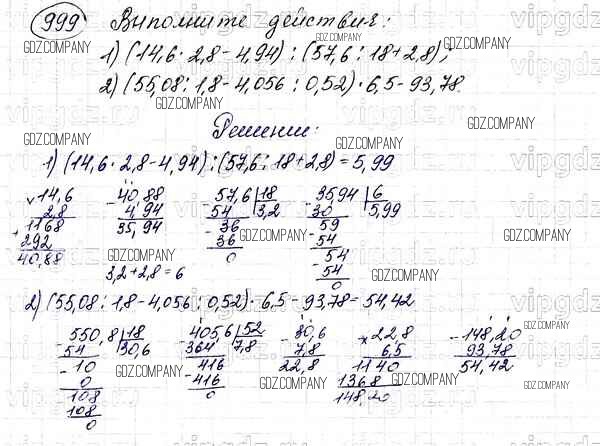 999 Выполните действия:
1) (14,6 · 2,8 - 4,94) : (57,6 : 18 + 2,8);
2) (55,08 : 1,8 - 4,056 : 0,52) · 6,5 - 93,78.
Решение:
1) (14,6 · 2,8 - 4,94) : (57,6 : 18 + 2,8) = 5,99
× 14,6
2,8
+ 1168
292
40,88
- 40,88
4,94
35,94
- 57,6 | 18
54 | 3,2
- 36
36
0
3,2 + 2,8 = 6
- 35,94 | 6
30 | 5,99
- 59
54
- 54
54
0
2) (55,08 : 1,8 - 4,056 : 0,52) · 6,5 - 93,78 = 54,42
- 550,8 | 18
54 | 30,6
- 10
0
- 108
108
0
- 405,6 | 52
364 | 7,8
- 416
416
0
- 30,6
7,8
22,8
× 22,8
6,5
1140
1368
148,20
- 148,20
93,78
54,42
GDZ.COMPANY
vipgdz.ru